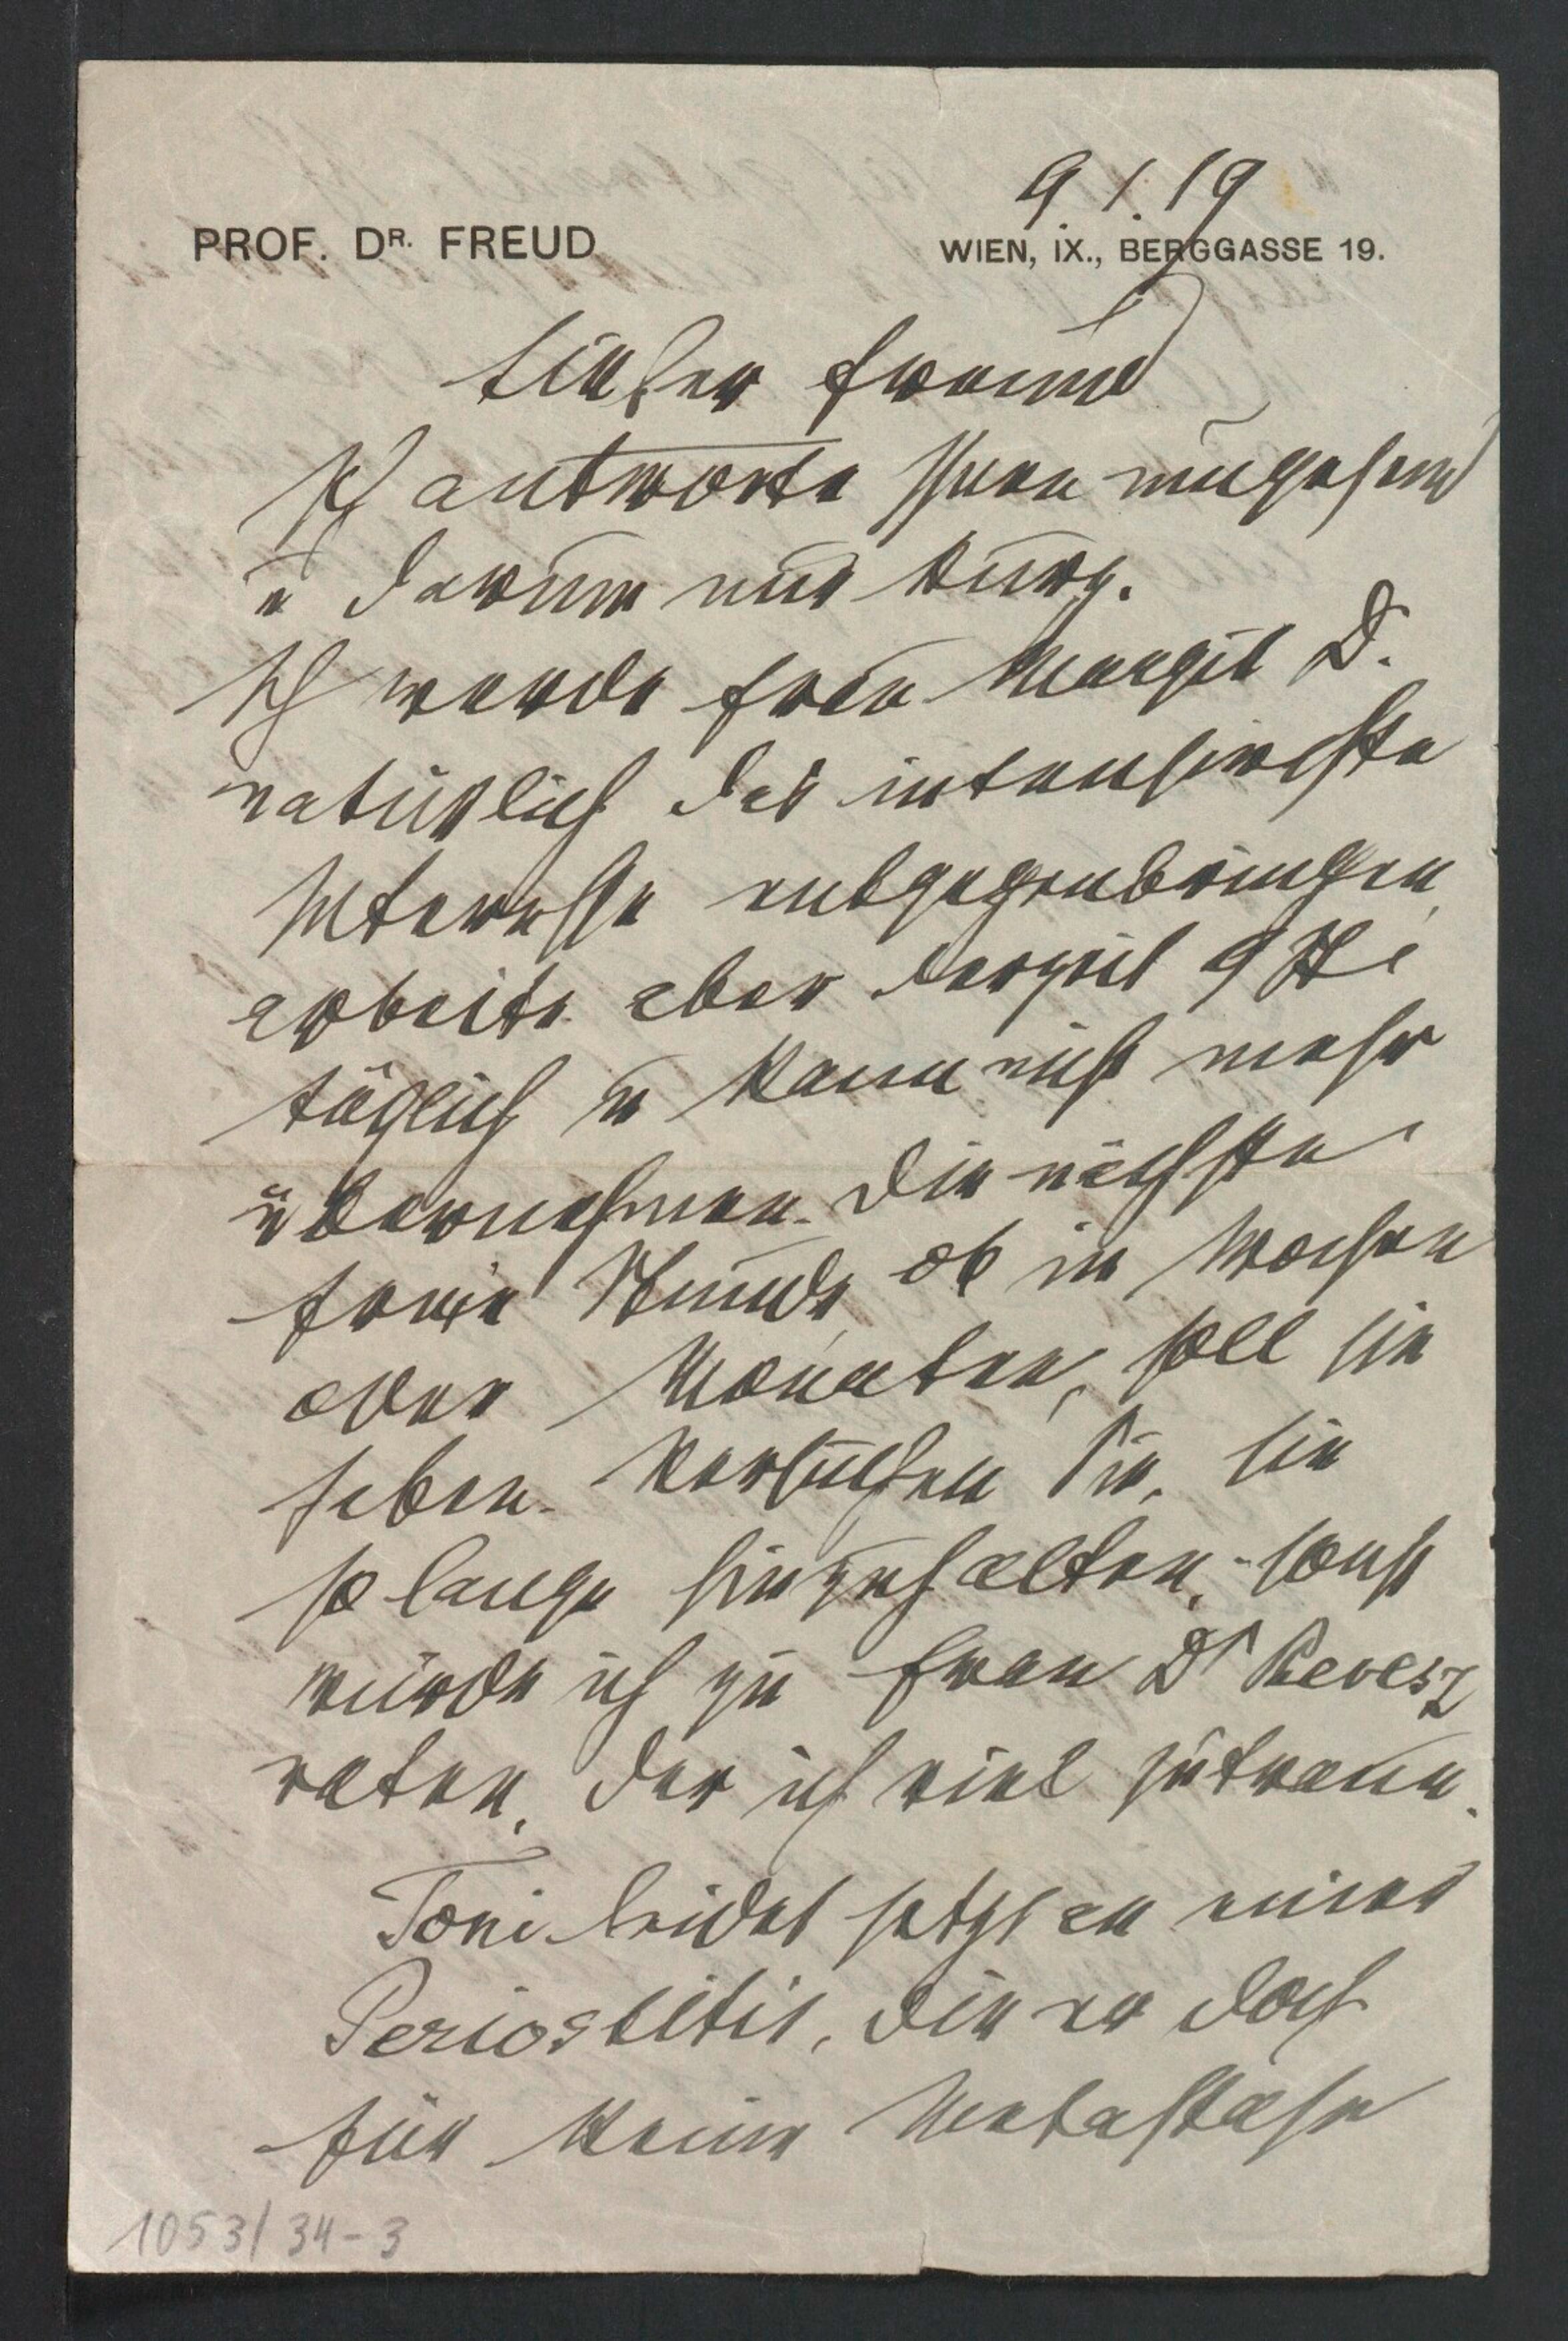 9.1.19
PROF. DR. FREUD
WIEN, IX., BERGGASSE 19.
Lieber Freund
Ich antworte Ihnen umgehend
u darum nur kurz.
Ich werde Frau Margit D.
natürlich das intensivste
Interesse entgegenbringen,
arbeite aber derzeit 9 St
täglich u kann nicht mehr
übernehmen. Die nächste
freie Stunde, ob in Wochen
oder Monaten, soll sie
haben. Versuchen Sie, sie
so lange hinzuhalten, sonst
würde ich zu Frau Dr Revesz
raten, der ich viel zutraue.
Toni leidet jetzt an einer
Periostitis, die er doch
für keine Metastase
1053/34-3